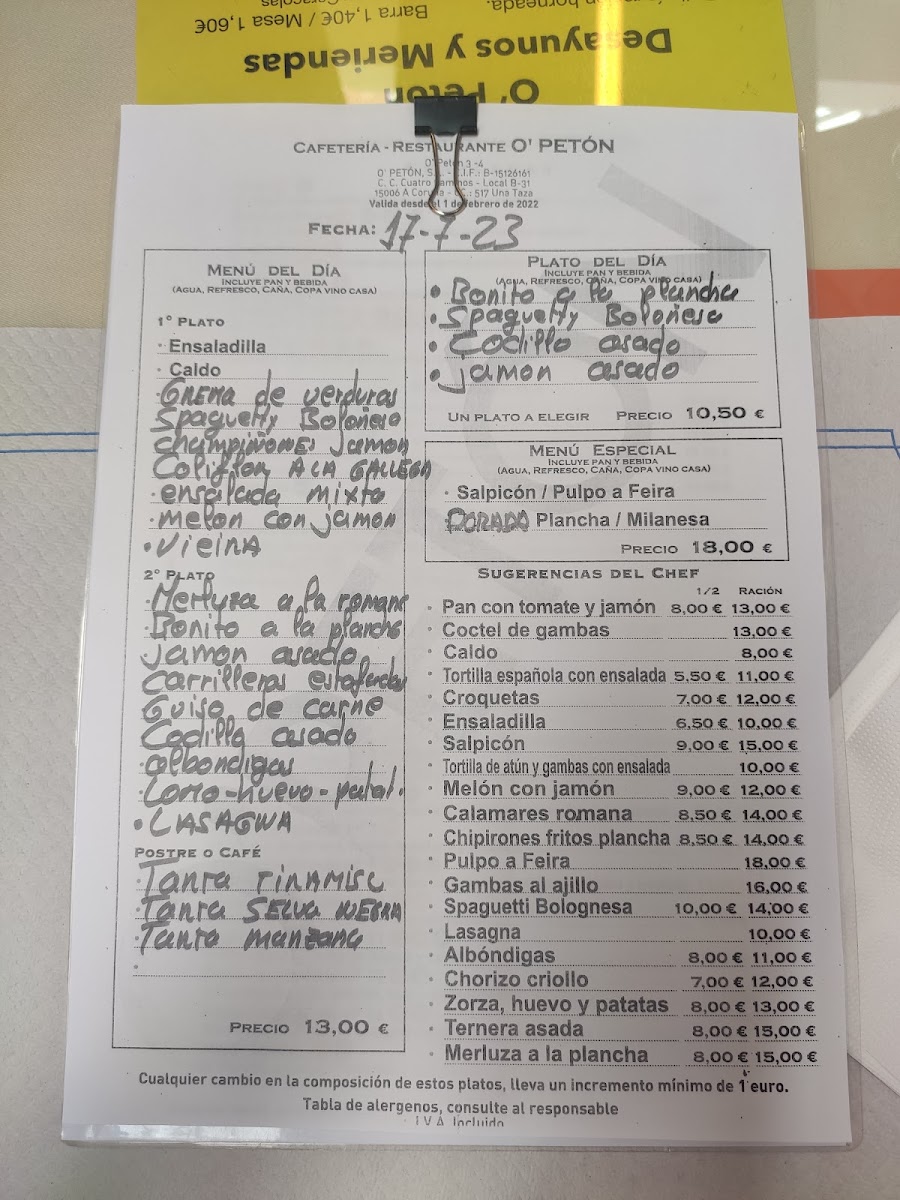 Barra 1,40€ / Mesa 1,60€
Desayunos y Meriendas
O' Petón
Cafetería - Restaurante O' PETÓN
O' Petón 3 -4
O' PETÓN, S. C.I.F.: B-15126161
C. C. Cuatro Caminos - Local B-31
15006 A Coruña - : 517 Una Taza
Valida desde el 1 de febrero de 2022
Fecha: 17-7-23
Menú del Día
Incluye pan y bebida
(Agua, Refresco, Caña, Copa vino casa)
1º Plato
· Ensaladilla
· Caldo
· Crema de verduras
Spaguetty Boloñese
champiñones jamon
Coliflor A LA GALLEGA
· ensalada mixta
· melon con jamon
• Vieina
2º Plato
· Merluza a la romana
· Bonito a la plancha
· jamon asado
Carrilleras estofadas
Guiso de carne
Codillo asado
· albondigas
· Lomo-huevo-patat.
• LASAGNA
Postre o Café
· Tarta TIRAMISU
· Tarta SELVA NEGRA
· Tarta manzana
Precio 13,00 €
Plato del Día
Incluye pan y bebida
(Agua, Refresco, Caña, Copa vino casa)
• Bonito a la plancha
• Spaguetty Boloñesa
• Codillo asado
• jamon asado
Un plato a elegir Precio 10,50 €
Menú Especial
Incluye pan y bebida
(Agua, Refresco, Caña, Copa vino casa)
· Salpicón / Pulpo a Feira
· DORADA Plancha / Milanesa
Precio 18,00 €
Sugerencias del Chef
1/2 Ración
· Pan con tomate y jamón 8,00 € 13,00 €
· Coctel de gambas 13,00 €
· Caldo 8,00 €
· Tortilla española con ensalada 5,50 € 11,00 €
· Croquetas 7,00 € 12,00 €
· Ensaladilla 6,50 € 10,00 €
· Salpicón 9,00 € 15,00 €
· Tortilla de atún y gambas con ensalada 10,00 €
· Melón con jamón 9,00 € 12,00 €
· Calamares romana 8,50 € 14,00 €
· Chipirones fritos plancha 8,50 € 14,00 €
· Pulpo a Feira 18,00 €
· Gambas al ajillo 16,00 €
· Spaguetti Bolognesa 10,00 € 14,00 €
· Lasagna 10,00 €
· Albóndigas 8,00 € 11,00 €
· Chorizo criollo 7,00 € 12,00 €
· Zorza, huevo y patatas 8,00 € 13,00 €
· Ternera asada 8,00 € 15,00 €
· Merluza a la plancha 8,00 € 15,00 €
Cualquier cambio en la composición de estos platos, lleva un incremento mínimo de 1 euro.
Tabla de alergenos, consulte al responsable
I.V.A. Incluido